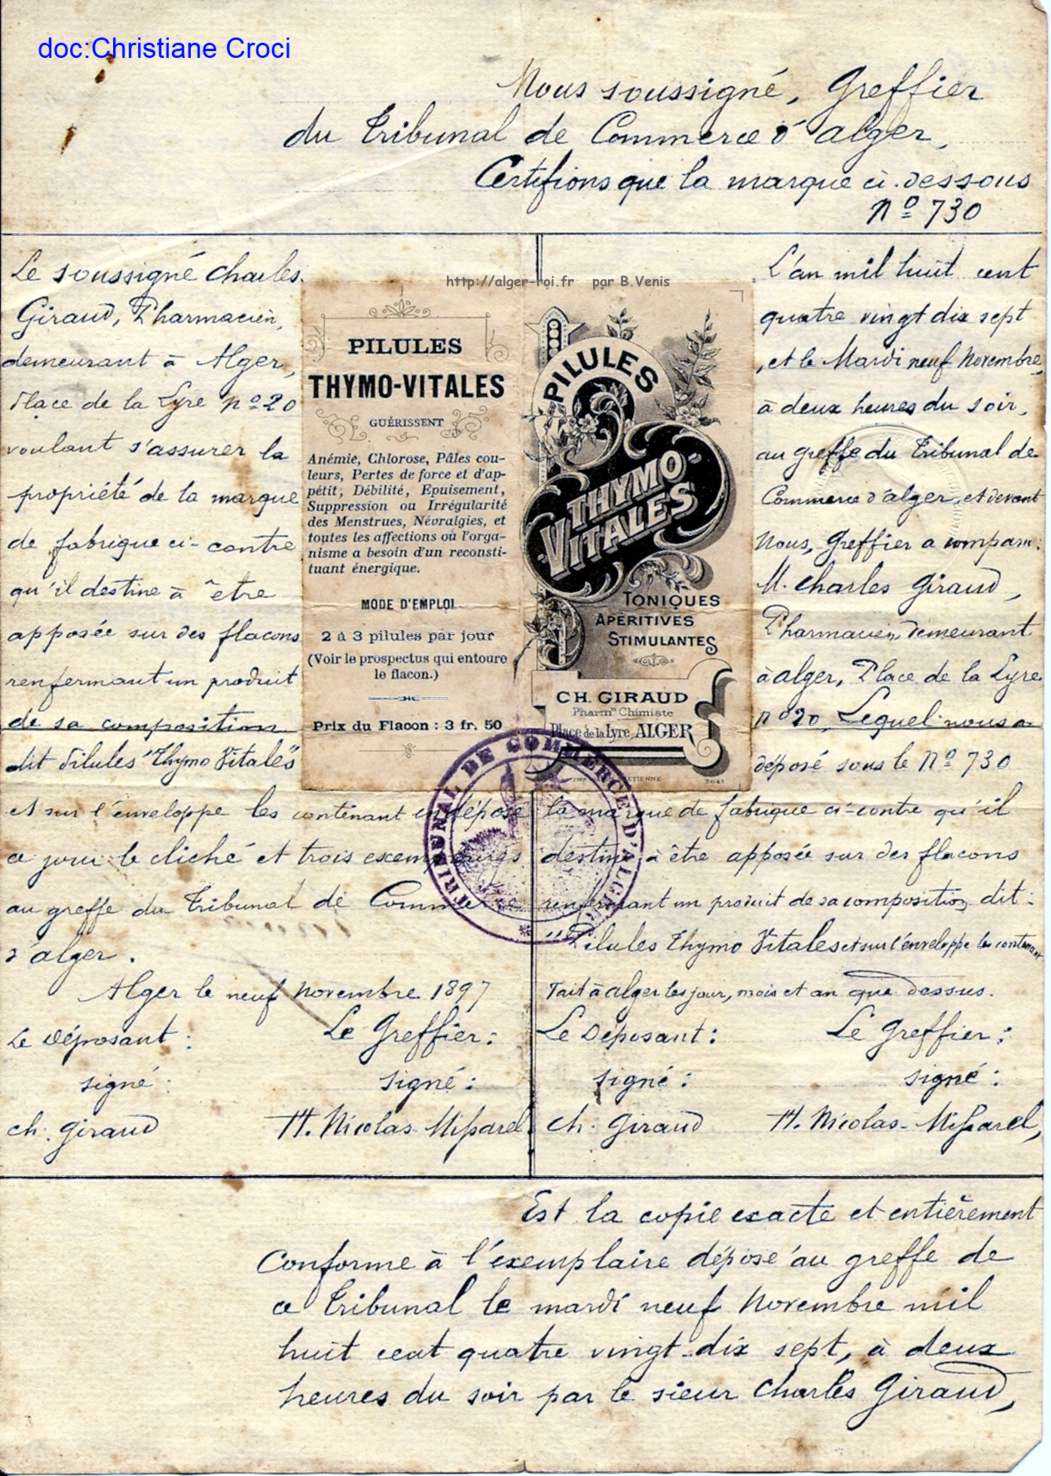 doc:Christiane Croci
Nous soussigné, Greffier
du Tribunal de Commerce d'Alger,
Certifions que la marque ci-dessous
Nº 730
Le soussigné Charles
Giraud, Pharmacien,
demeurant à Alger,
Place de la Lyre nº 20
voulant s'assurer la
propriété de la marque
de fabrique ci-contre
qu'il destine à être
apposée sur des flacons
renfermant un produit
de sa composition
dit Pilules "Thymo Vitales"
et sur l'enveloppe les contenant en dépose
ce jour le cliché et trois exemplaires
au greffe du Tribunal de Commerce
d'Alger.
Alger le neuf novembre 1897
Le Déposant :
Le Greffier :
signé :
signé :
Ch. Giraud
H. Nicolas-
http://alger-roi.fr par B.Venis
PILULES
THYMO-VITALES
GUÉRISSENT
Anémie, Chlorose, Pâles cou-
leurs, Pertes de force et d'ap-
pétit, Débilité, Epuisement,
Suppression ou Irrégularité
des Menstrues, Névralgies, et
toutes les affections où l'orga-
nisme a besoin d'un reconsti-
tuant énergique.
MODE D'EMPLOI
2 à 3 pilules par jour
(Voir le prospectus qui entoure
le flacon.)
Prix du Flacon : 3 fr. 50
PILULES
THYMO-
VITALES
TONIQUES
APÉRITIVES
STIMULANTES
CH. GIRAUD
Pharmen Chimiste
Place de la Lyre, ALGER
TRIBUNAL DE COMMERCE D'ALGER
L'an mil huit cent
quatre vingt dix sept
, et le Mardi neuf Novembre,
à deux heures du soir,
au greffe du Tribunal de
Commerce d'Alger, et devant
Nous, Greffier a comparu
M. Charles Giraud,
Pharmacien, demeurant
à Alger, Place de la Lyre
nº 20, Lequel nous a
déposé sous le Nº 730
la marque de fabrique ci-contre qu'il
destine à être apposée sur des flacons
renfermant un produit de sa composition dit :
"Pilules Thymo Vitales et sur l'enveloppe les contenant
Fait à Alger les jour, mois et an que dessus.
Le Déposant :
Le Greffier :
signé :
signé :
Ch. Giraud
H. Nicolas-
Est la copie exacte et entièrement
Conforme à l'exemplaire déposé au greffe de
ce Tribunal le mardi neuf Novembre mil
huit cent quatre vingt-dix sept, à deux
heures du soir par le sieur Charles Giraud,